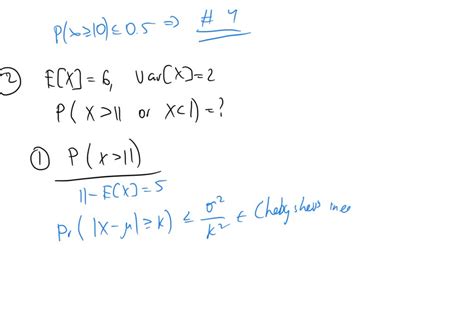 P(x≥10)≤0.5 ⇒ #4
② E[X]=6, Var[X]=2
P( X>11 or X<1)=?
① P(X>11)
11-E[X]=5
Pr( |X-μ|≥k) ≤ σ²/k² ← Chebyshevs inee